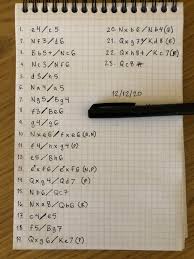 1. e4/c5
2. Nf3/d6
3. Bb5+/Nc6
4. Nc3/Nf6
5. d3/h5
6. Nx4/a5
7. Ng5/Bg4
8. f3/Bc8
9. g4/g6
10. Nxe6/fxe6
11. f4/hxg4
12. e5/Bh6
14. Qxg4/Qd7
15. Nb6/Qc7
16. Nxa8/Qb8
17. c4/e5
18. f5/Bg7
19. Qxg6/Ke7
20. Nxb6/Nb4
21. Qxg7/Kd8
22. Qxh8+/Kc7
23. Qc8#
12/12/20